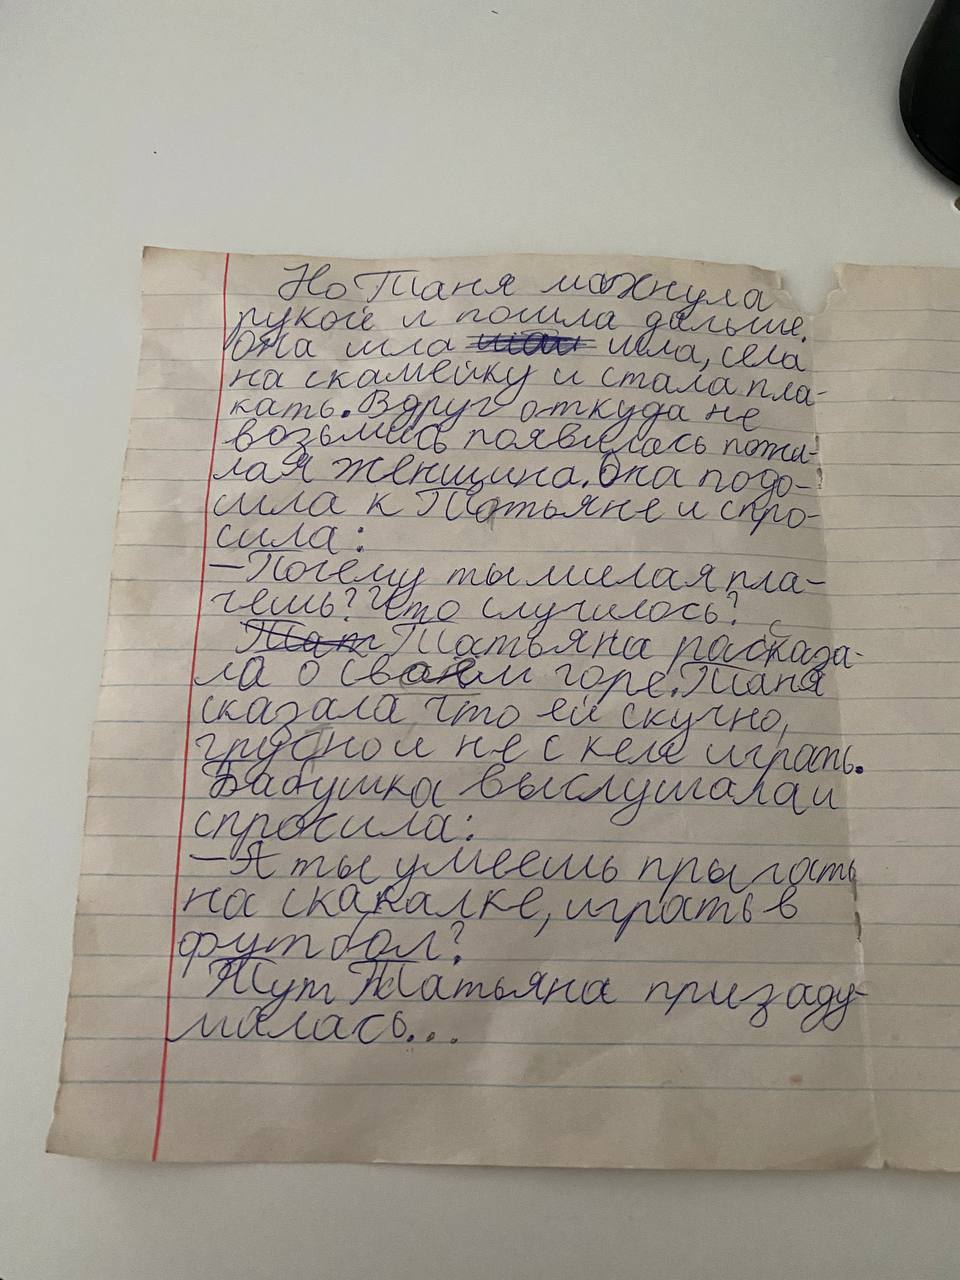 Но Таня махнула
рукой и пошла дальше.
Она шла шла, села
на скамейку и стала пла-
кать. Вдруг откуда не
возьмись появилась пожи-
лая женщина. Она подо-
шла к Татьяне и спро-
сила:
– Почему ты милая пла-
чешь? Что случилось?
Тат Татьяна расказа-
ла о своём горе. Таня
сказала что ей скучно,
грусно и не с кем играть.
Бабушка выслушала и
спросила:
– А ты умеешь прыгать
на скакалке, играть в
футбол?
Тут Татьяна призаду-
малась...